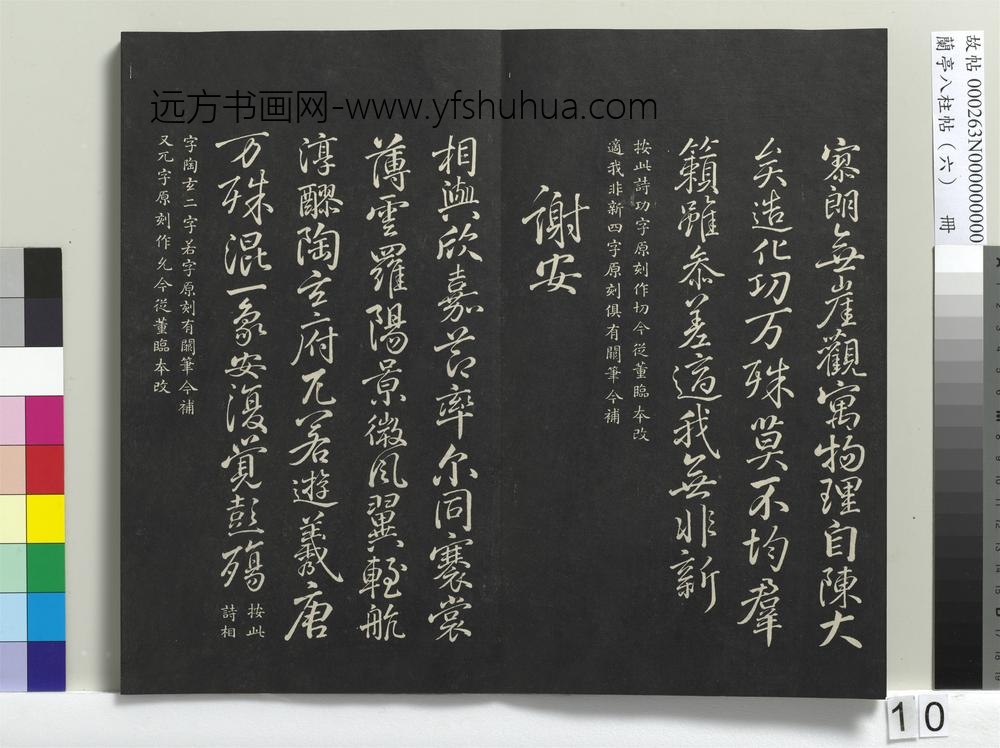 远方书画网-www.yfshuhua.com
寮朗無崖觀寓物理自陳大
矣造化功万殊莫不均羣
籟雖叅差適我無非新
按此詩功字原刻作切今從董臨本改
適我非新四字原刻俱有闕筆今補
謝安
相與欣嘉莭率尔同褰裳
薄雲羅陽景微風翼輕航
淳醪陶玄府兀若遊羲唐
万殊混一象安復覺彭殤
按此
詩相
字陶玄二字若字原刻有闕筆今補
又兀字原刻作允今從董臨本改
故帖 000263N000000000
蘭亭八柱帖（六） 冊
10